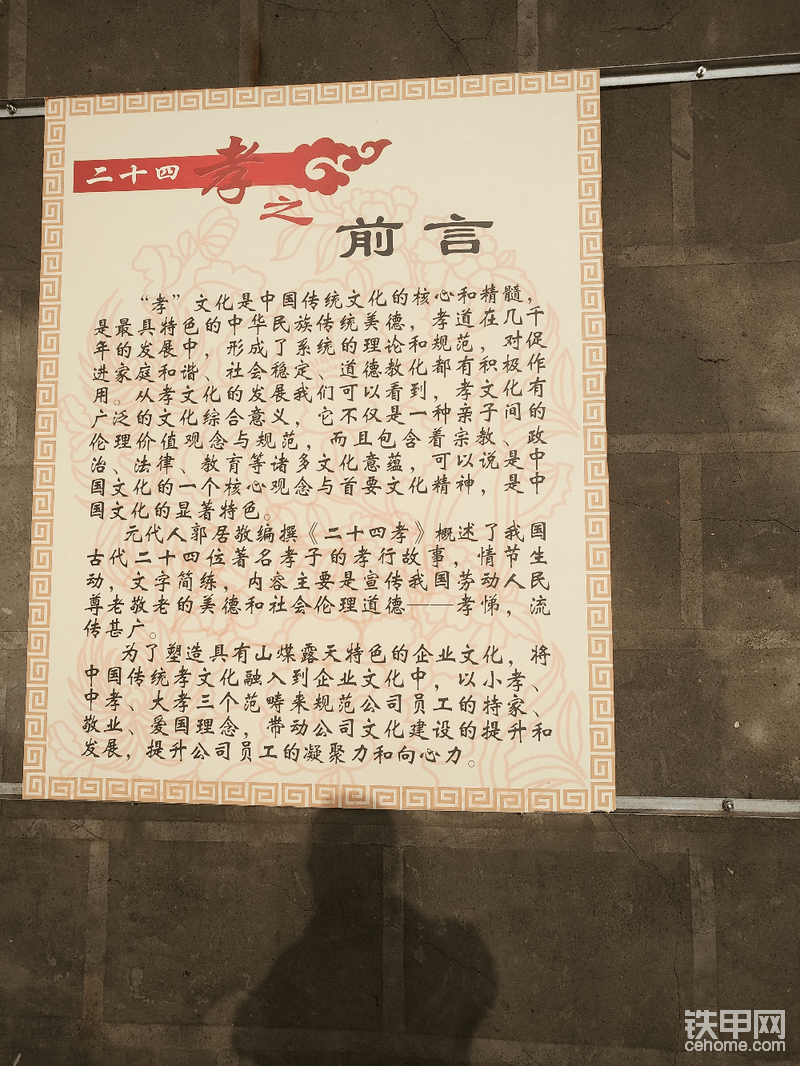 二十四孝
之
前言
“孝”文化是中国传统文化的核心和精髓，
是最具特色的中华民族传统美德，孝道在几千
年的发展中，形成了系统的理论和规范，对促
进家庭和谐、社会稳定、道德教化都有积极作
用。从孝文化的发展我们可以看到，孝文化有
广泛的文化综合意义，它不仅是一种亲子间的
伦理价值观念与规范，而且包含着宗教、政
治、法律、教育等诸多文化意蕴，可以说是中
国文化的一个核心观念与首要文化精神，是中
国文化的显著特色。
元代人郭居敬编撰《二十四孝》概述了我国
古代二十四位著名孝子的孝行故事，情节生
动，文字简练，内容主要是宣传我国劳动人民
尊老敬老的美德和社会伦理道德——孝悌，流
传甚广。
为了塑造具有山煤露天特色的企业文化，将
中国传统孝文化融入到企业文化中，以小孝、
中孝、大孝三个范畴来规范公司员工的持家、
敬业、爱国理念，带动公司文化建设的提升和
发展，提升公司员工的凝聚力和向心力。
铁甲网
cehome.com